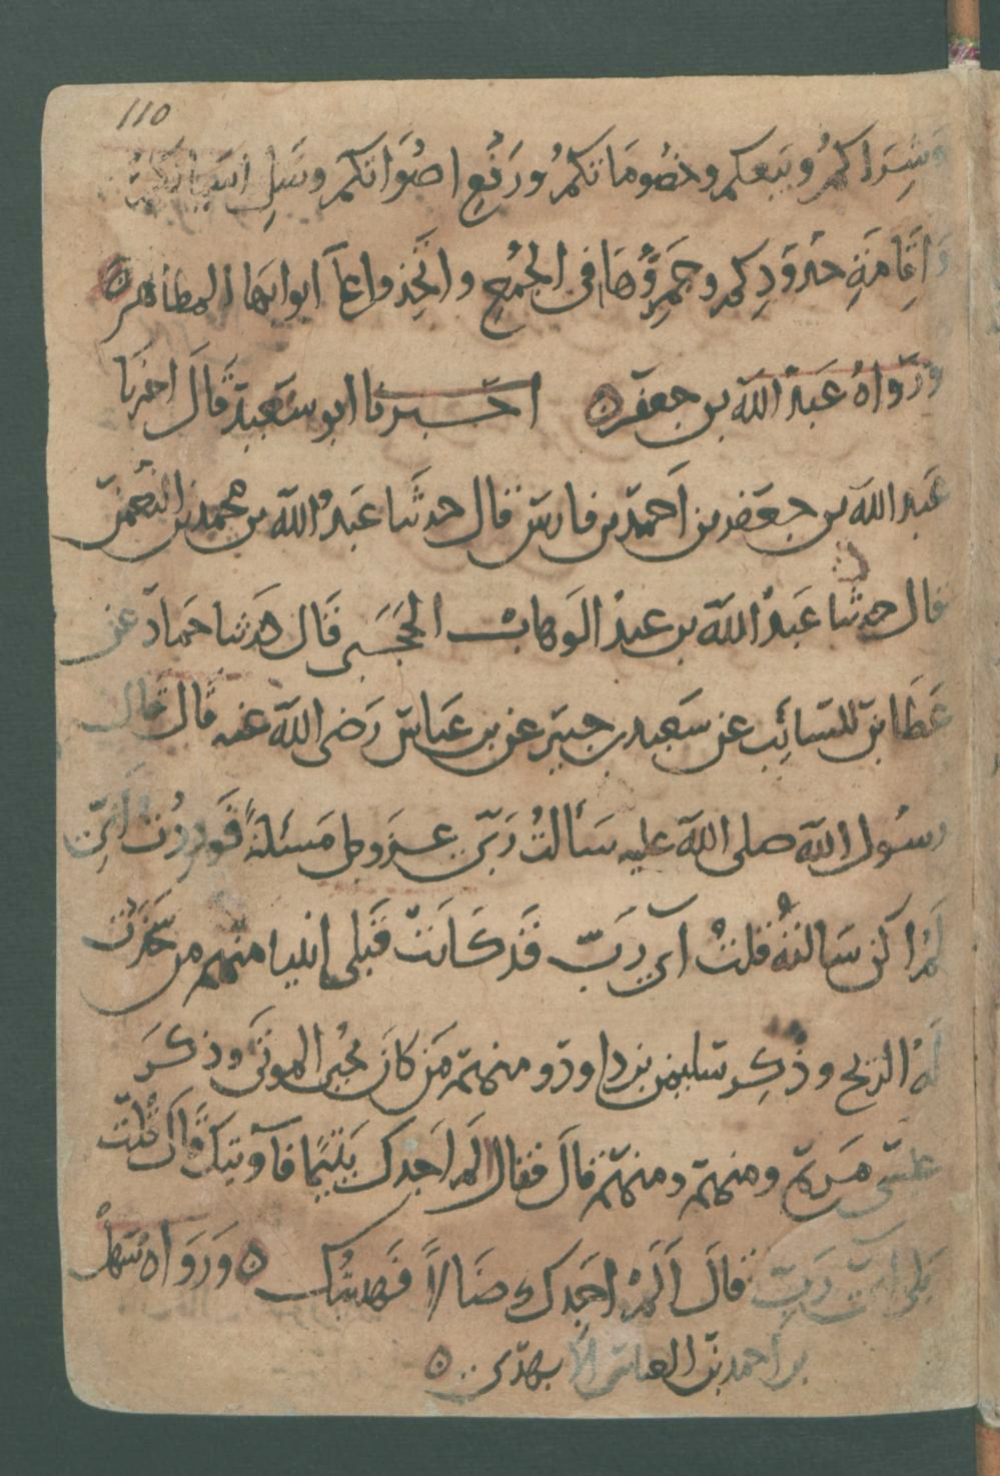 110
وَشِرَاكم وبيعكم وخصُومَاتكم ورَفع اصوَاتكم وسَلِ اسيافكم
وَاقِامَةِ حدُودِكم وجَمِرُوهَا فى الجمع واتخِذوا على ابوابها المطاهر
ورَوَاهُ عَبدُ الله بن جعفر ه اخــبرنا ابو سَعيد قَالَ اخبرنا
عَبد الله بن جعفر بن اَحمد بن فارس قال حدثنا عَبدُ الله بن محمد بن النعمن
قال حدثنا عَبدُ الله بن عبد الوَهاب الحجَبى قَال حَدثنا حَماد عن
عَطَا بن للسَائِب عن سَعيد بن جبير عن بن عَباس رَضى الله عنه قال قال
رسُول الله صلى الله عليه سَألتُ رَبّى عز وجل مَسئلةً فوَدِدْتُ اَنى
لَم اكن سَالتهُ قلتُ اَى رَبّ قَد كَانَت قَبلى انبيا منهم من سَخرت
لهُ الريح وذُكِر سليمن بن داود ومنهم مَن كان يُحيى الموتى وذكرَ
عيسَى بن مَريم ومنهم ومنهم قالَ فقال اَلم اَجدك يَتيمًا فآويتك قالَ قلت
بلى اى رَبّ قالَ اَلَم اجَدك ضَالاً فهديتك ه ورَوَاه سَهل
بن احمد بن العباس الا بهذى ه